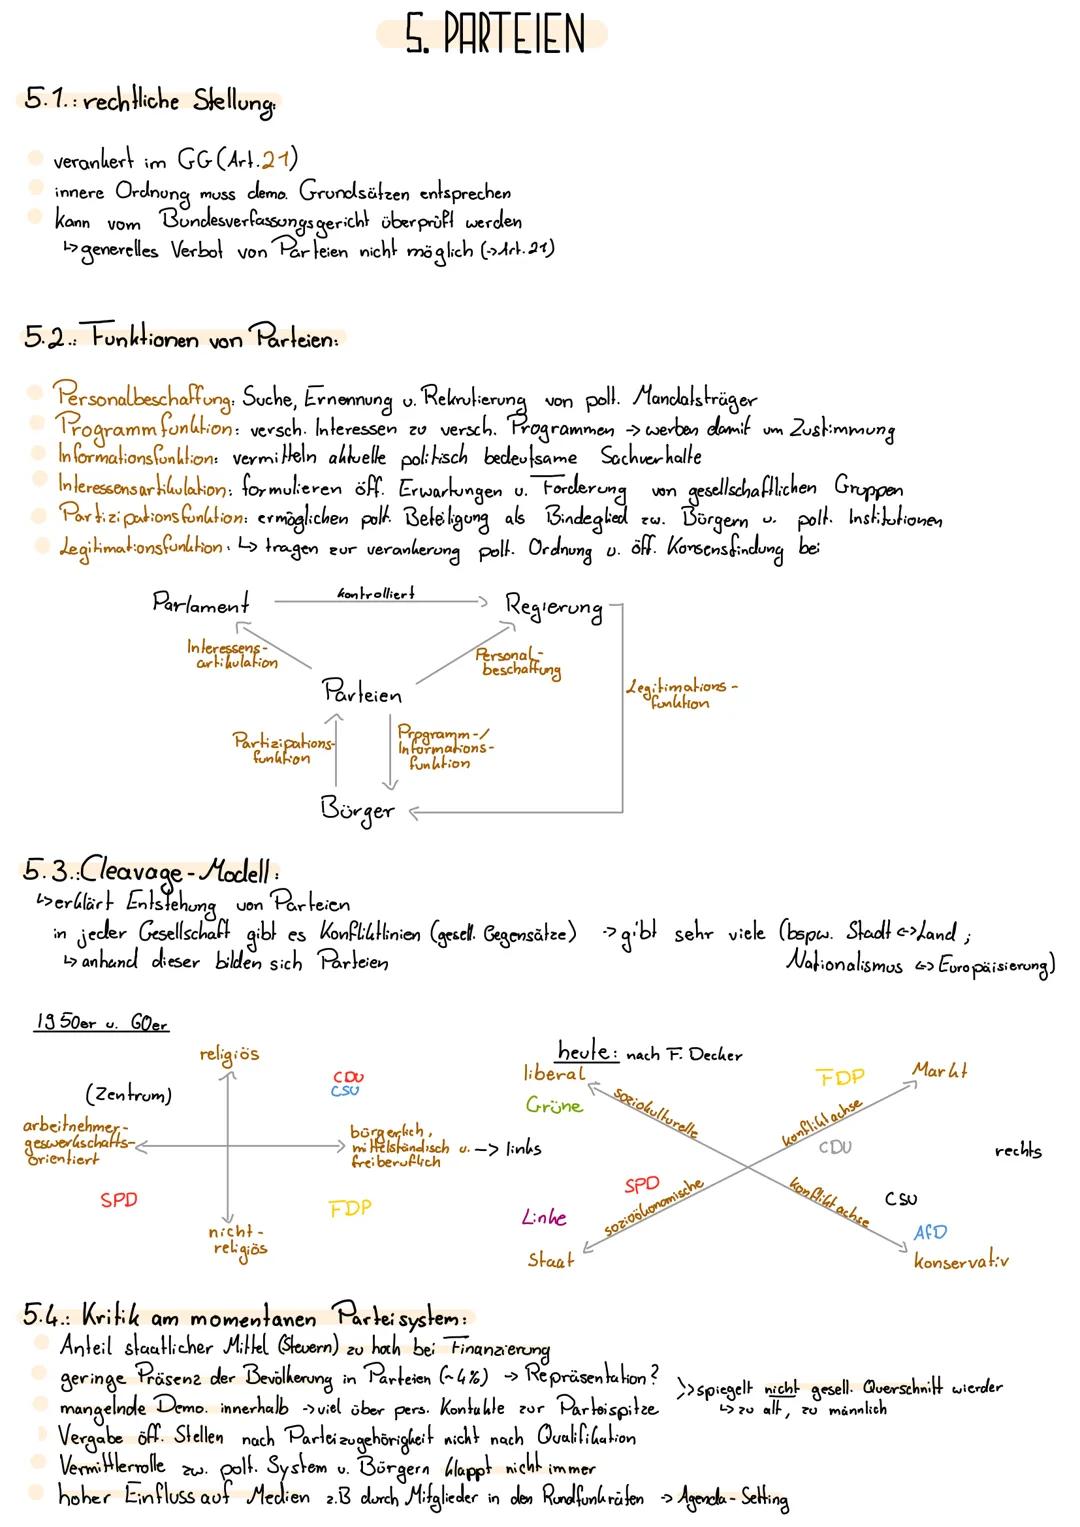 5. PARTEIEN
5.1.: rechtliche Stellung:
verankert im GG (Art. 21)
innere Ordnung muss demo. Grundsätzen entsprechen
kann vom Bundesverfassungsgericht überprüft werden
↳ generelles Verbot von Parteien nicht möglich (→ Art. 21)
5.2.: Funktionen von Parteien:
Personalbeschaffung: Suche, Ernennung u. Rekrutierung von polt. Mandatsträger
Programmfunktion: versch. Interessen zu versch. Programmen → werben damit um Zustimmung
Informationsfunktion: vermitteln aktuelle politisch bedeutsame Sachverhalte
Interessensartikulation: formulieren öff. Erwartungen u. Forderung von gesellschaftlichen Gruppen
Partizipationsfunktion: ermöglichen polt. Beteiligung als Bindeglied zw. Bürgern u. polt. Institutionen
Legitimationsfunktion: ↳ tragen zur verankerung polt. Ordnung u. öff. Konsensfindung bei
Parlament kontrolliert Regierung
Interessens-
artikulation
Personal-
beschaffung
Parteien
Legitimations-
funktion
Partizipations-
funktion
Programm-/
Informations-
funktion
Bürger
5.3.: Cleavage-Modell:
↳ erklärt Entstehung von Parteien
in jeder Gesellschaft gibt es Konfliktlinien (gesell. Gegensätze) → gibt sehr viele (bspw. Stadt ↔ Land;
↳ anhand dieser bilden sich Parteien Nationalismus ↔ Europäisierung)
1950er u. 60er
religiös
(Zentrum)
CDU
CSU
arbeitnehmer-
geswerkschafts-
orientiert
bürgerlich,
mittelständisch u.
freiberuflich
SPD
FDP
nicht-
religiös
heute: nach F. Decker
liberal
FDP
Markt
Grüne
soziokulturelle
konfliktachse
CDU
→ links
rechts
SPD
sozioökonomische
konfliktachse
CSU
Linke
AfD
Staat
konservativ
5.4.: Kritik am momentanen Parteisystem:
Anteil staatlicher Mittel (Steuern) zu hoch bei Finanzierung
geringe Präsenz der Bevölkerung in Parteien (~4%) → Repräsentation?
>> spiegelt nicht gesell. Querschnitt wierder
↳ zu alt, zu männlich
mangelnde Demo. innerhalb → viel über pers. Kontakte zur Parteispitze
Vergabe öff. Stellen nach Parteizugehörigkeit nicht nach Qualifikation
Vermittlerrolle zw. polt. System u. Bürgern klappt nicht immer
hoher Einfluss auf Medien z.B durch Mitglieder in den Rundfunkräten → Agenda-Setting